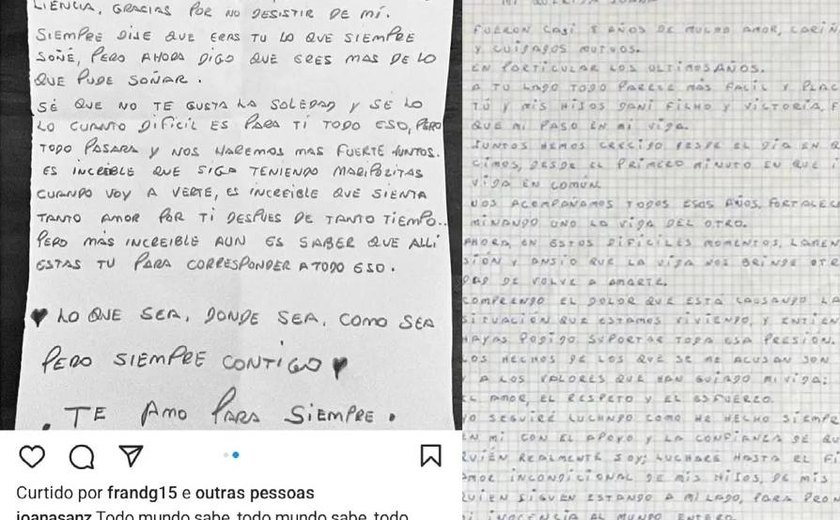 LIENCIA, GRACIAS POR NO DESISTIR DE MÍ.
SIEMPRE DIJE QUE ERAS TU LO QUE SIEMPRE
SOÑÉ, PERO AHORA DIGO QUE ERES MAS DE LO
QUE PUDE SOÑAR.
SÉ QUE NO TE GUSTA LA SOLEDAD Y SÉ LO
LO CUANTO DIFICIL ES PARA TI TODO ESO, PERO
TODO PASARA Y NOS HAREMOS MAS FUERTE JUNTOS.
ES INCREIBLE QUE SIGA TENIENDO MARIPOZITAS
CUANDO VOY A VERTE, ES INCREIBLE QUE SIENTA
TANTO AMOR POR TI DESPUES DE TANTO TIEMPO..
PERO MÁS INCREIBLE AUN ES SABER QUE ALLI
ESTAS TU PARA CORRESPONDER A TODO ESO.
♥ LO QUE SEA, DONDE SEA, COMO SEA
PERO SIEMPRE CONTIGO ♥
. TE AMO PARA SIEMPRE.
Curtido por frandg15 e outras pessoas
joanasanz Todo mundo sabe, todo mundo sabe, todo
MI QUERIDA
FUERON CASI 8 AÑOS DE MUCHO AMOR, CARIÑ
Y CUIDADOS MUTUOS.
EN PARTICULAR LOS ULTIMOS AÑOS.
A TU LADO TODO PARECE MÁS FACIL Y PLAC
TÚ Y MIS HIJOS DANI FILHO Y VICTORIA,
QUE MI PASO EN MI VIDA.
JUNTOS HEMOS CRECIDO DESDE EL DÍA EN Q
CIMOS, DESDE EL PRIMERO MINUTO EN QUE
VIDA EN COMÚN.
NOS ACOMPAÑAMOS TODOS ESOS AÑOS, FORTALEC
MINANDO UNO LA VIDA DEL OTRO.
AHORA, EN ESTOS DIFÍCILES MOMENTOS, LAMEN
SION Y ANSIO QUE LA VIDA NOS BRINDE OTR
DAD DE VOLVE A AMARTE.
COMPRENDO EL DOLOR QUE ESTA CAUSANDO LA
SITUACIÓN QUE ESTAMOS VIVIENDO, Y ENTIEN
HAYAS PODIDO SUPORTAR TODA ESA PRESIÓN.
LOS HECHOS DE LOS QUE SE ME ACUSAN SON
A LOS VALORES QUE HAN GUIADO MI VIDA;
EL AMOR, EL RESPETO Y EL ESFUERZO.
YO SEGUIRÉ LUCHANDO COMO HE HECHO SIEMPR
EN MI CON EL APOYO Y LA CONFIANZA DE QU
QUIÉN REALMENTE SOY; LUCHARE HASTA EL FI
AMOR INCONDICIONAL DE MIS HIJOS, DE MIS
QUIEN SIGUEN ESTANDO A MI LADO, PARA PRO
INOCENCIA AL MUNDO ENTERO.